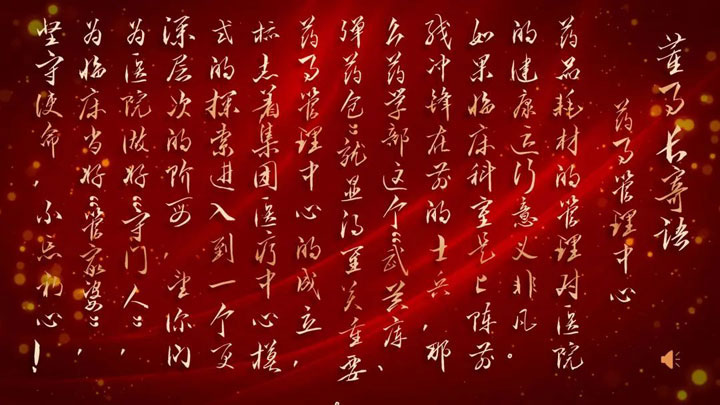 董事长寄语
药事管理中心
药品耗材的管理对医院
的健康运行意义非凡。
如果临床科室是上阵前
线冲锋在前的士兵,那
么药学部这个“武器库、
弹药包”就显得至关重要。
药事管理中心的成立,
标志着集团医疗中心模
式的探索进入到一个更
深层次的阶段,望你们
为医院做好“守门人”,
为临床当好“管家婆”,
坚守使命,不忘初心!